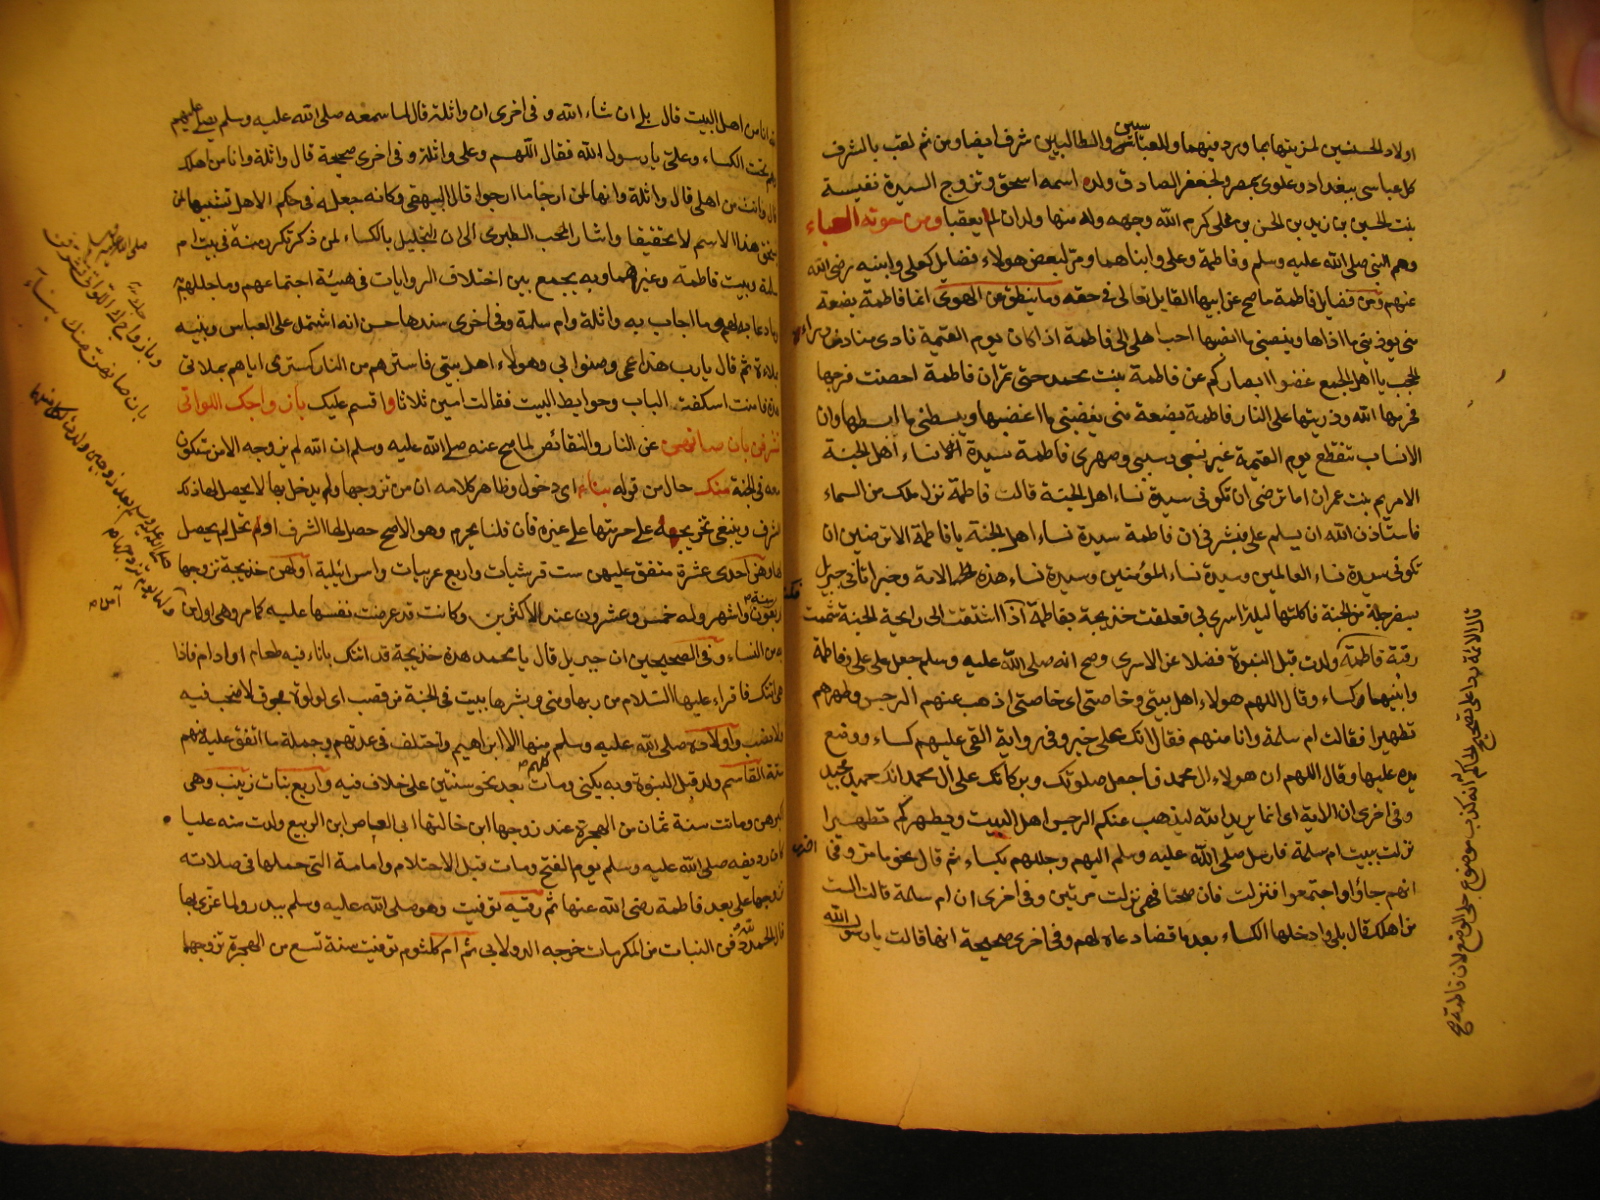 اولاد الحسنين لمزيتهما بما ورد فيهما وللعباسيين والطالبيين شرف ايضا ومن ثم لقب بالشرف
كل عباسى ببغداد وعلوى بمصر ولجعفر الصادق ولد اسمه اسحق وتزوج السيدة نفيسة
بنت الحسين بن زيد بن الحسن بن على كرم الله وجهه وله منها ولدان لم يعقبا ومن حوته العباء
وهم النبى صلى الله عليه وسلم وفاطمة وعلى وابناهما ومر لبعض هولاء فضايل كعلى وابنيه رضى الله
عنهم ومن فضايل فاطمة ما صح عن ابيها القايل تعالى فى حقه وما ينطق عن الهوى انما فاطمة بضعة
منى يوذينى ما اذاها وينصبنى ما انصبها احب اهلى الى فاطمة اذا كان يوم القيمة نادى مناد من وراء
الحجب يا اهل الجمع غضوا ابصاركم عن فاطمة بنت محمد حتى تمر ان فاطمة احصنت فرجها
فحرمها الله وذريتها على النار فاطمة بضعة منى يغضبنى ما اغضبها ويبسطنى ما ابسطها وان
الانساب تنقطع يوم القيمة غير نسبى وسببى وصهرى فاطمة سيدة نساء اهل الجنة
الا مريم بنت عمران اما ترضى ان تكونى سيدة نساء اهل الجنة قالت فاطمة نزل ملك من السماء
فاستاذن الله ان يسلم على فبشرنى ان فاطمة سيدة نساء اهل الجنة يا فاطمة الا ترضين ان
تكونى سيدة نساء العالمين وسيدة نساء المؤمنين وسيدة نساء هذه الامة وخبر اتانى جبريل
بسفرجلة من الجنة فاكلتها ليلة اسرى بى فعلقت خديجة بفاطمة اذا اشتقت الى رايحة الجنة شممت
رقبة فاطمة ولدت قبل النبوة فضلا عن الاسرى وصح انه صلى الله عليه وسلم جعل على على وفاطمة
وابنيهما كساء وقال اللهم هولاء اهل بيتى وخاصتى اى خاصتى اذهب عنهم الرجس وطهرهم
تطهيرا فقالت ام سلمة وانا منهم فقال انك على خير وفى رواية القى عليهم كساء ووضع
يده عليها وقال اللهم ان هولاء ال محمد فاجعل صلوتك وبركاتك على ال محمد انك حميد مجيد
وفى اخرى ان الاية اى انما يريد الله ليذهب عنكم الرجس اهل البيت ويطهركم تطهيرا
نزلت ببيت ام سلمة فارسل صلى الله عليه وسلم اليهم وجللهم بكساء ثم قال نحو ما مر وفى اخرى
انهم جاؤا واجتمعوا فنزلت فان صحتا فهى نزلت مرتين وفى اخرى ان ام سلمة قالت الست
من اهلك قال بلى وادخلها الكساء بعد ما قضا دعاه لهم وفى اخرى صحيحة انها قالت يا رسول الله
انا من اهل البيت قال بلى ان شاء الله وفى اخرى ان واثلة قال لما سمعه صلى الله عليه وسلم يصلى عليهم
تحت الكساء وعلى يا رسول الله فقال اللهم وعلى واثلة وفى اخرى صحيحة قال واثلة وانا من اهلك
قال وانت من اهلى قال واثلة وانها لمن ارجا ما ارجوا قال البيهقى وكانه جعله فى حكم الاهل تشبيها بمن
يستحق هذا الاسم لا تحقيقا واشار المحب الطبرى الى ان التجليل بالكساء لمن ذكر تكرر منه فى بيت ام
سلمة وبيت فاطمة وغيرهما وبه يجمع بين اختلاف الروايات فى هيئة اجتماعهم وما جللهم به
وما دعا به لهم وما اجاب به واثلة وام سلمة وفى اخرى سندها حسن انه اشتمل على العباس وبنيه
بملاءة ثم قال يا رب هذا عمى وصنو ابى وهولاء اهل بيتى فاسترهم من النار كسترى اياهم بملائتى
هذه فامنت اسكفة الباب وحوايط البيت فقالت امين ثلاثا واقسم عليك بازواجك اللواتى
تشرفن بان صانهن عن النار والنقائص لما صح عنه صلى الله عليه وسلم ان الله لم يزوجه الا من تكون
معه فى الجنة منك حال من قوله بناء اى دخول وظاهر كلامه ان من تزوجها ولم يدخل بها لا يحصل لها ذلك
الشرف وينبغى تخريجه على حرمتها على غيره فان قلنا يحرم وهو الاصح حصل لها الشرف اولم تحل لم يحصل
لها وهن احدى عشرة متفق عليهن ست قرشيات واربع عربيات واسرائيلية اولهن خديجة تزوجها
ربعون سنة واشهر وله خمس وعشرون عند الاكثرين وكانت قد عرضت نفسها عليه كما مر وهى اول من
به من النساء وفى الصحيحين ان جبريل قال يا محمد هذه خديجة قد اتتك باناء فيه طعام او ادام فاذا
هى اتتك فاقراء عليها السلام من ربها ومنى وبشرها ببيت فى الجنة من قصب اى لولوة مجوفة لا صخب فيه
ولا نصب واولاده صلى الله عليه وسلم منها الا ابراهيم واختلف فى عدتهم وجملة ما اتفق عليه منهم
ستة القاسم ولد قبل النبوة وبه يكنى ومات بعد نحو سنتين على خلاف فيه واربع بنات زينب وهى
اكبرهن وماتت سنة ثمان من الهجرة عند زوجها ابن خالتها ابى العاص ابن الربيع ولدت منه عليا
كان رديفه صلى الله عليه وسلم يوم الفتح ومات قبل الاحتلام وامامة التى حملها فى صلاته
تزوجها على بعد فاطمة رضى الله عنها ثم رقية توفيت وهو صلى الله عليه وسلم ببدر ولما عزى بها
قال الحمد لله دفن البنات من المكرمات خرجه الدولابى ثم ام كلثوم توفيت سنة تسع من الهجرة تزوجها